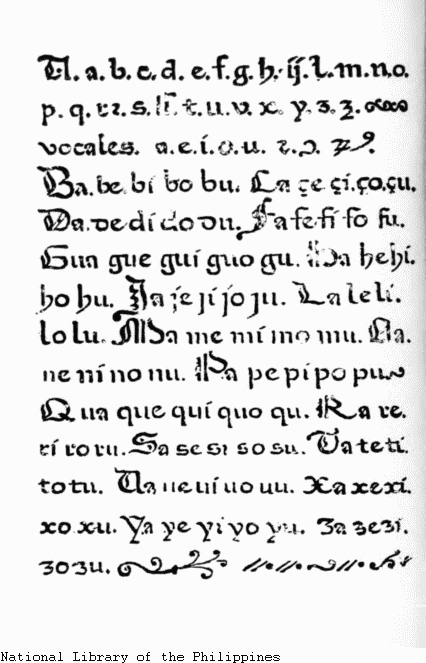 A. a. b. c. d. e. f. g. h. ij. l. m. n. o.
p. q. rz. s. t. u. v. x. y. z. ʒ.
vocales. a. e. i. o. u.
Ba. be. bi bo bu. Ca çe çi. ço, çu.
Da. de di do du. Fa fe fi fo fu.
Gua gue gui guo gu. Ha he hi.
ho hu. Ja je ji jo ju. La le li.
lo lu. Ma me mi mo mu. Na.
ne ni no nu. Pa pe pi po pu
Qua que qui quo qu. Ra re.
ri ro ru. Sa se si so su. Ta te ti.
to tu. Ua ue ui uo uu. Xa xe xi.
xo xu. Ya ye yi yo yu. Za ze zi.
zo zu.
National Library of the Philippines